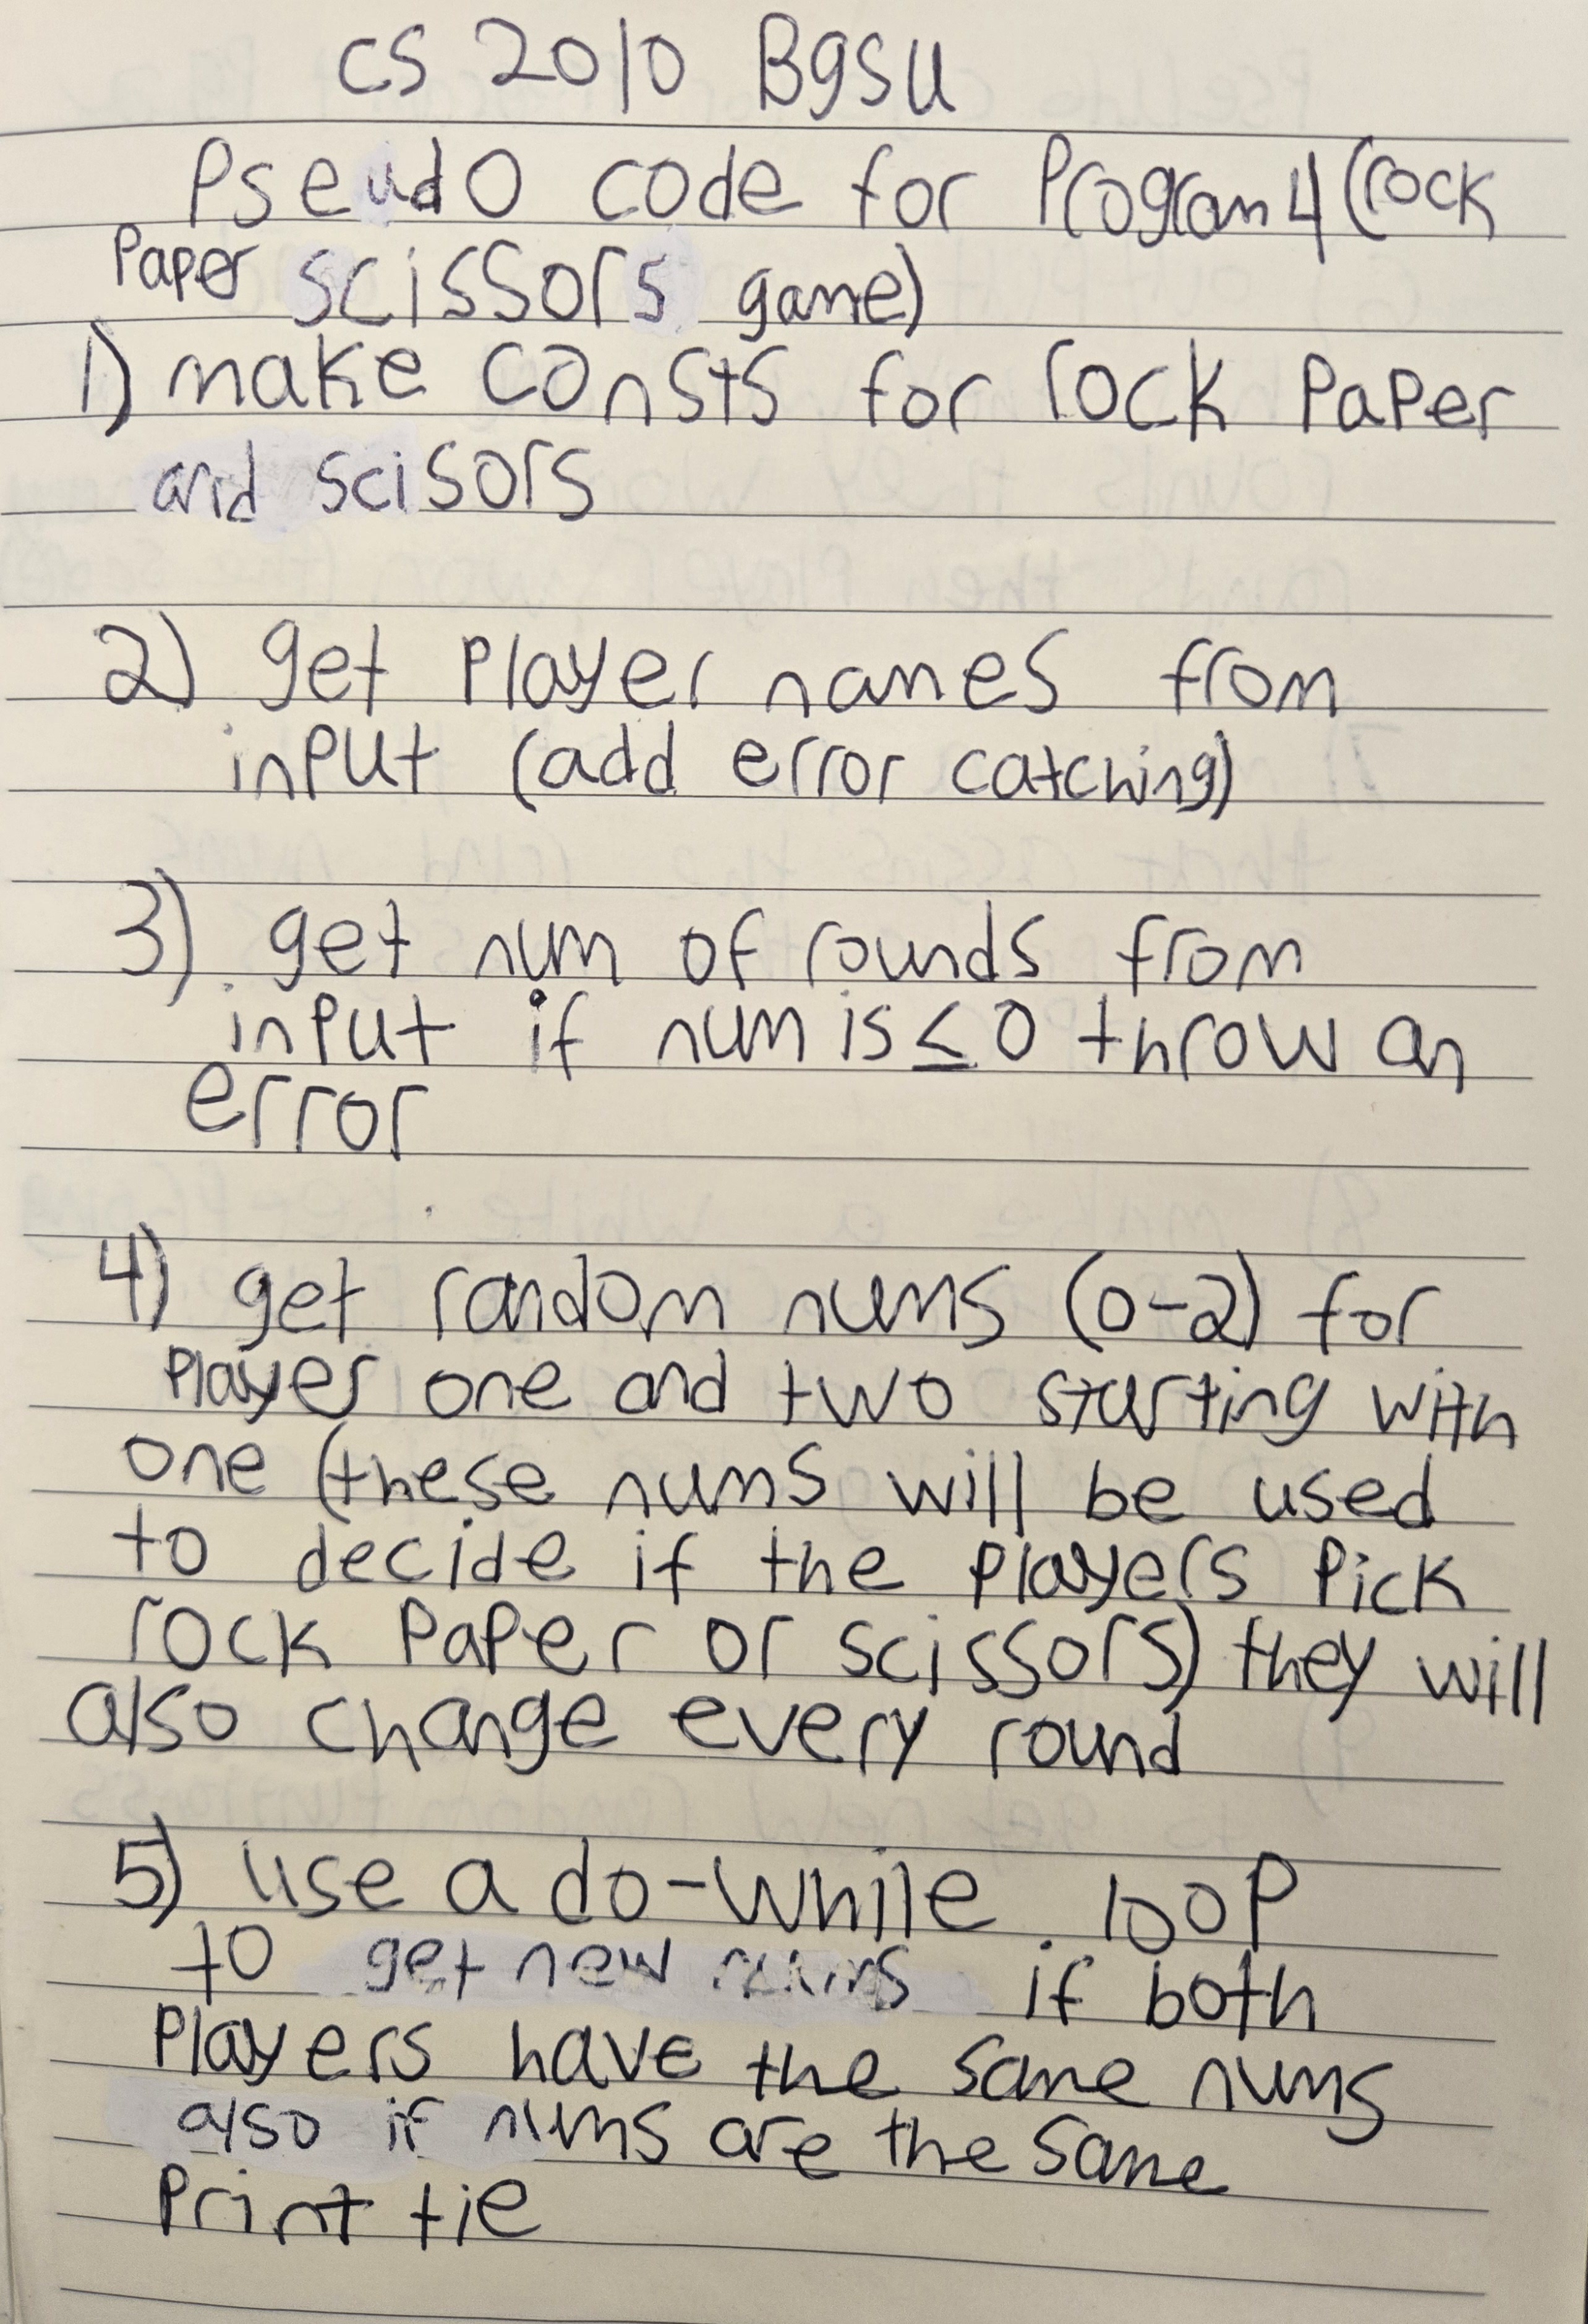 CS 2010 BgSU
Pseudo code for Program 4 (rock
Paper scissors game)
1) make consts for rock Paper
and scisors
2) get Player names from
input (add error catching)
3) get num of rounds from
input if num is ≤ 0 throw an
error
4) get random nums (0-2) for
Player one and two starting with
one (these nums will be used
to decide if the players Pick
rock Paper or scissors) they will
also change every round
5) use a do-while loop
to get new nums if both
Players have the same nums
also if nums are the same
Print tie